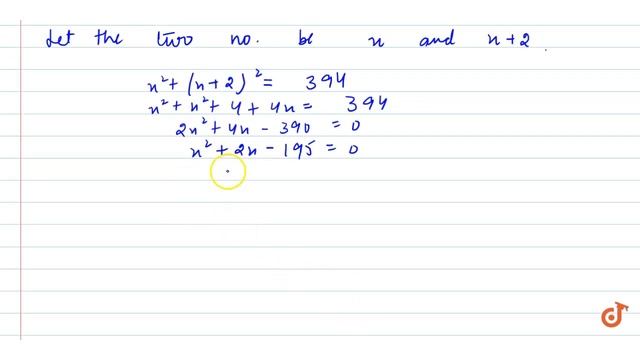 Let the two no. be x and x+2.
x² + (x+2)² = 394
x² + x² + 4 + 4x = 394
2x² + 4x - 390 = 0
x² + 2x - 195 = 0